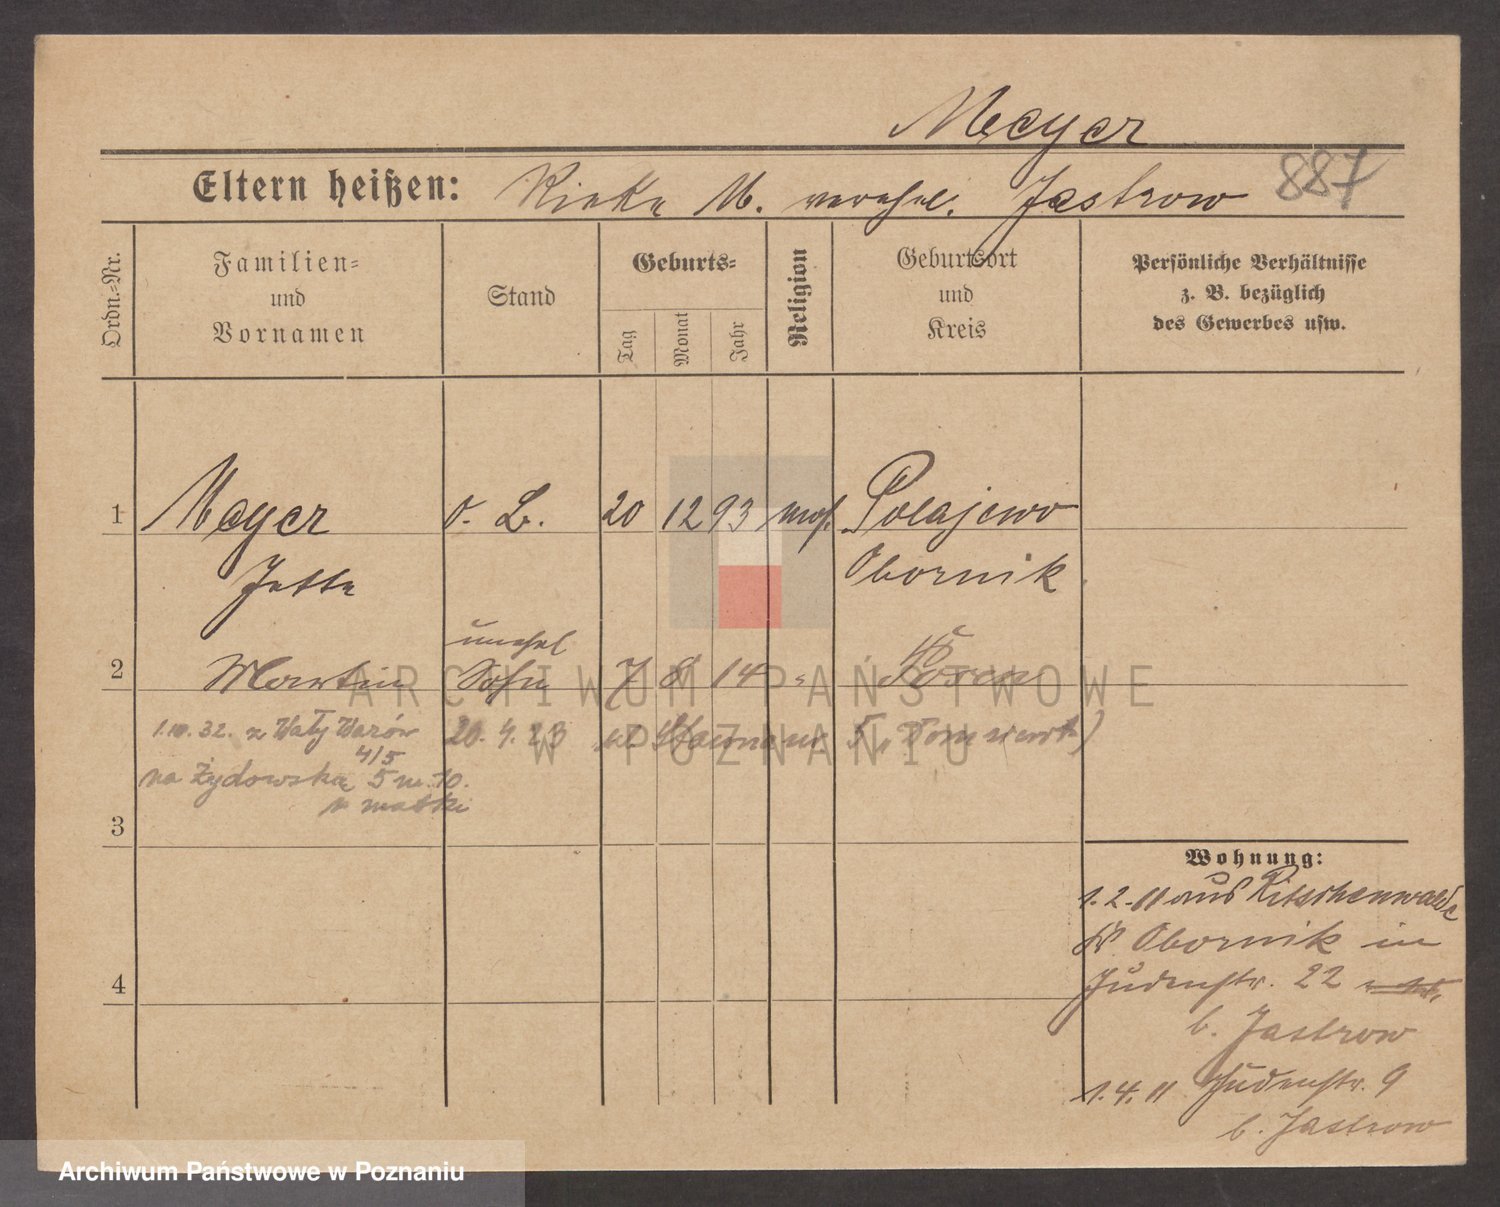 Meyer
Eltern heißen: Rieke M. verehel. Jastrow 887
Ordn.-Nr.
Familien-
und
Vornamen
Stand
Geburts-
Tag
Monat
Jahr
Religion
Geburtsort
und
Kreis
Persönliche Verhältnisse
z. B. bezüglich
des Gewerbes usw.
1 Meyer o. B. 20 12 93 mos. Polajewo
Jette Obornik
unehel
2 Martin Sohn 7 8 14 " Posen
1.10.32. z Wały Wazów 20.4.23
4/5
na Żydowską 5 m. 10.
u matki
3
4
Wohnung:
1.2.11 aus Ritschenwalde
Kr. Obornik in
Judenstr. 22
b. Jastrow
1.4.11 Judenstr. 9
b. Jastrow
ARCHIWUM PAŃSTWOWE
W POZNANIU
Archiwum Państwowe w Poznaniu